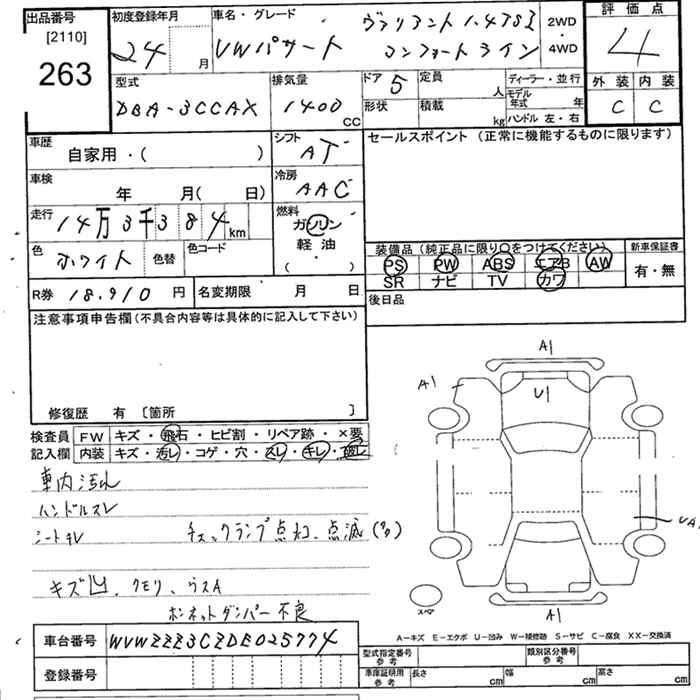 出品番号 初度登録年月 車名・グレード ヴァリアント 1.4TSI 2WD・4WD 評価点
[2110] 263 24 月 VWパサート コンフォートライン 4
型式 排気量 ドア 5 定員 人 ディーラー・並行 外装 内装
DBA-3CCAX 1400 CC 形状 積載 kg モデル年式 年 ハンドル 左・右 C C
車歴 自家用・( ) シフト AT セールスポイント (正常に機能するものに限ります)
車検 年 月( 日) 冷房 AAC
走行 14万3千384 km 燃料 ガソリン 軽油 ( ・ )
色 ホワイト 色替 色コード
装備品 (純正品に限り○をつけてください) 新車保証書
PS PW ABS エアB AW 有・無
SR ナビ TV カワ
R券 18,910 円 名変期限 月 日 後日品
注意事項申告欄(不具合内容等は具体的に記入して下さい)
修復歴 有 [箇所 ]
検査員 FW キズ・飛石・ヒビ割・リペア跡・×要
記入欄 内装 キズ・汚レ・コゲ・穴・スレ・キレ・破レ
車内汚れ
ハンドルスレ
シートキレ チェックランプ点灯、点滅
キズ凹、クモリ、ウスA
ボンネットダンパー不良
A1
A1
U1
UA
A1
スペア
A−キズ E−エクボ U−凹み W−補修跡 S−サビ C−腐食 XX−交換済
車台番号 WVWZZZ3CZDE025774
登録番号
型式指定番号 参考 類別区分番号 参考
車庫証明用 参考 長さ cm 幅 cm 高さ cm